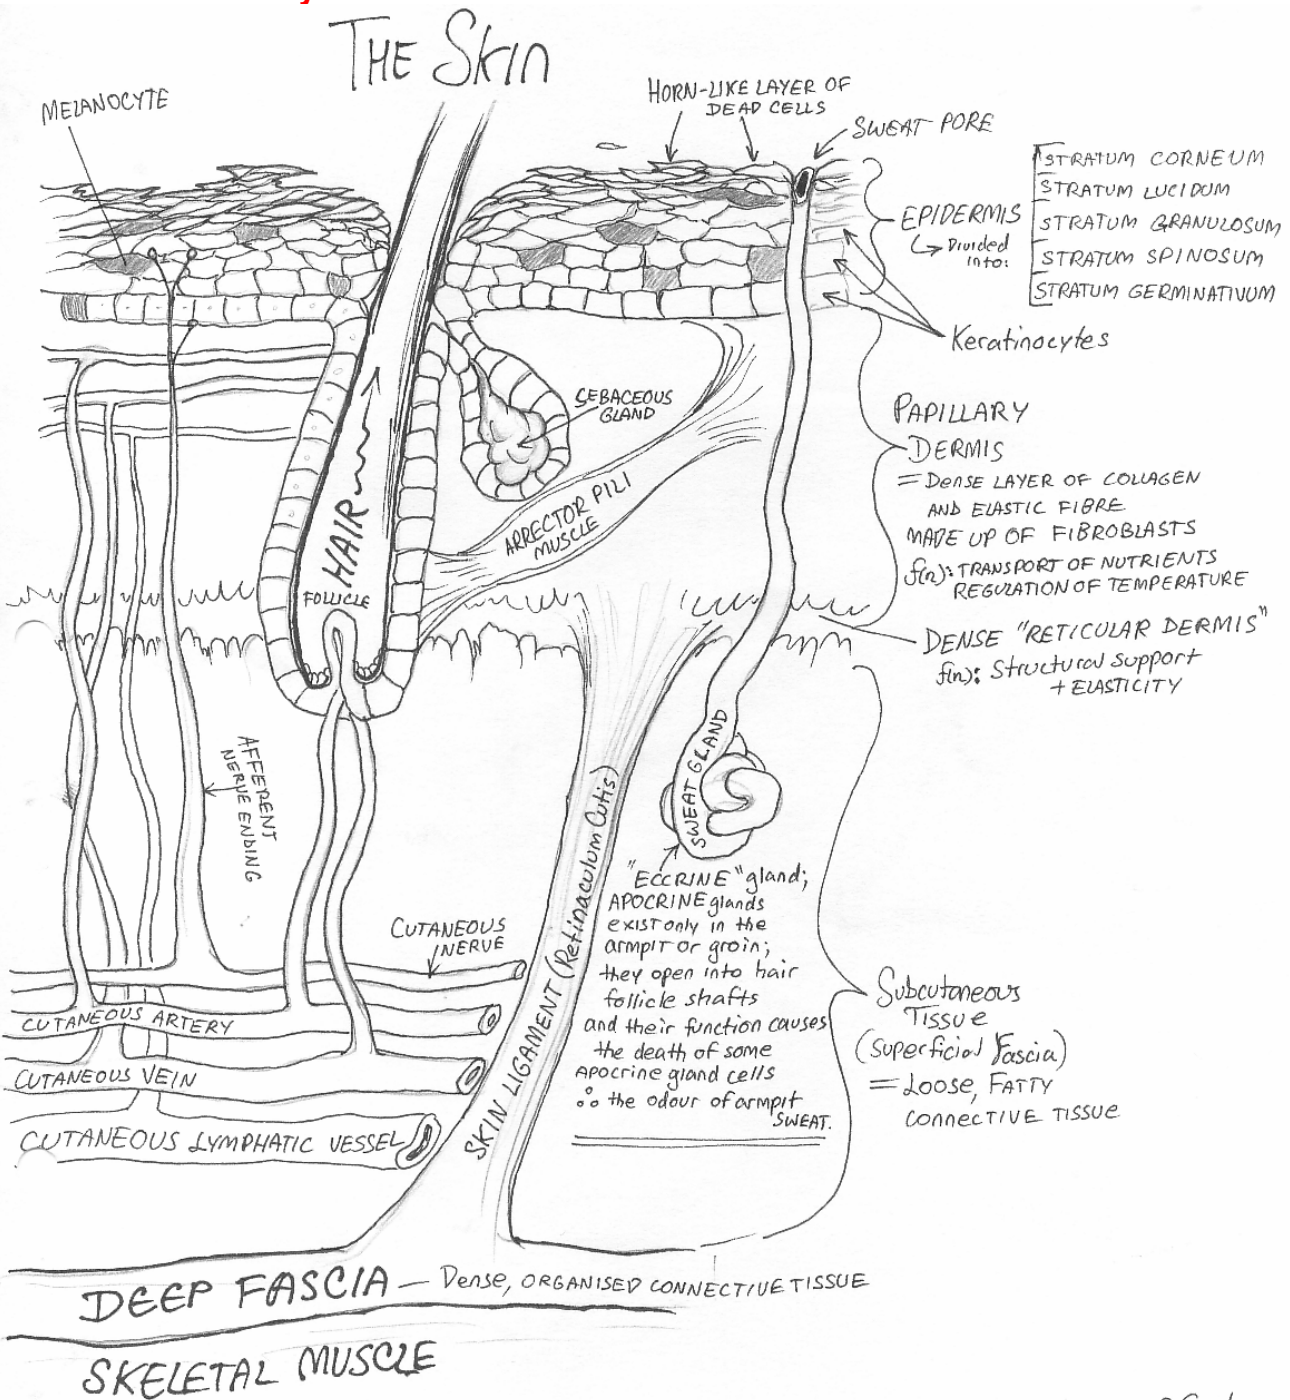 THE Skin
MELANOCYTE
HORN-LIKE LAYER OF
DEAD CELLS
SWEAT PORE
EPIDERMIS
↳ Divided
into:
STRATUM CORNEUM
STRATUM LUCIDUM
STRATUM GRANULOSUM
STRATUM SPINOSUM
STRATUM GERMINATIVUM
Keratinocytes
SEBACEOUS
GLAND
HAIR
FOLLICLE
ARRECTOR PILI
MUSCLE
PAPILLARY
DERMIS
= DENSE LAYER OF COLLAGEN
AND ELASTIC FIBRE
MADE UP OF FIBROBLASTS
f(n): TRANSPORT OF NUTRIENTS
REGULATION OF TEMPERATURE
DENSE "RETICULAR DERMIS"
f(n): Structural support
+ ELASTICITY
AFFERENT
NERVE ENDING
SWEAT GLAND
"ECCRINE" gland;
APOCRINE glands
exist only in the
armpit or groin;
they open into hair
follicle shafts
and their function causes
the death of some
apocrine gland cells
∴ the odour of armpit
SWEAT.
SKIN LIGAMENT (Retinaculum Cutis)
CUTANEOUS
NERVE
CUTANEOUS ARTERY
CUTANEOUS VEIN
CUTANEOUS LYMPHATIC VESSEL
Subcutaneous
Tissue
(Superficial Fascia)
= Loose, FATTY
connective TISSUE
DEEP FASCIA — Dense, ORGANISED CONNECTIVE TISSUE
SKELETAL MUSCLE